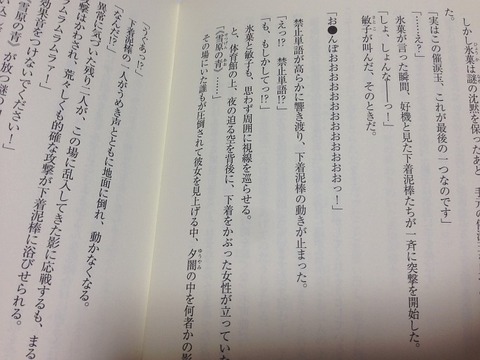 しかし氷菓は謎の沈黙を保ったあと
た。
「実はこの催涙玉、これが最後の一つなのです」
「……え?」
氷菓が言った瞬間、好機と見た下着泥棒たちが一斉に突撃を開始した。
「しょ、しょんなーーっ!」
敏子が叫んだ、そのときだ。
「お●んぽおおおおおおおおおおおおおっ!」
禁止単語が高らかに響き渡り、下着泥棒の動きが止まった。
「えっ!? 禁止単語!?」
「も、もしかしてっ!?」
氷菓と敏子も、思わず周囲に視線を巡らせる。
と、体育館の上、夜の迫る空を背後に、下着をかぶった女性が立ってい
「《雪原の青》……!」
その場にいた誰もが圧倒されて彼女を見上げる中、夕闇の中を何者かの影
「うぐあっ?」
下着泥棒の一人がうめき声とともに地面に倒れ、動かなくなる。
「なんだ?」
異常に気づいた残り二人が、この場に乱入してきた影に応戦するも、まる
撃はかわされ、荒々しくも的確な攻撃が下着泥棒に浴びせられる。
ムラムラムラァ!」
効果音をつけないでください!」
《雪原の青》が放つ謎の